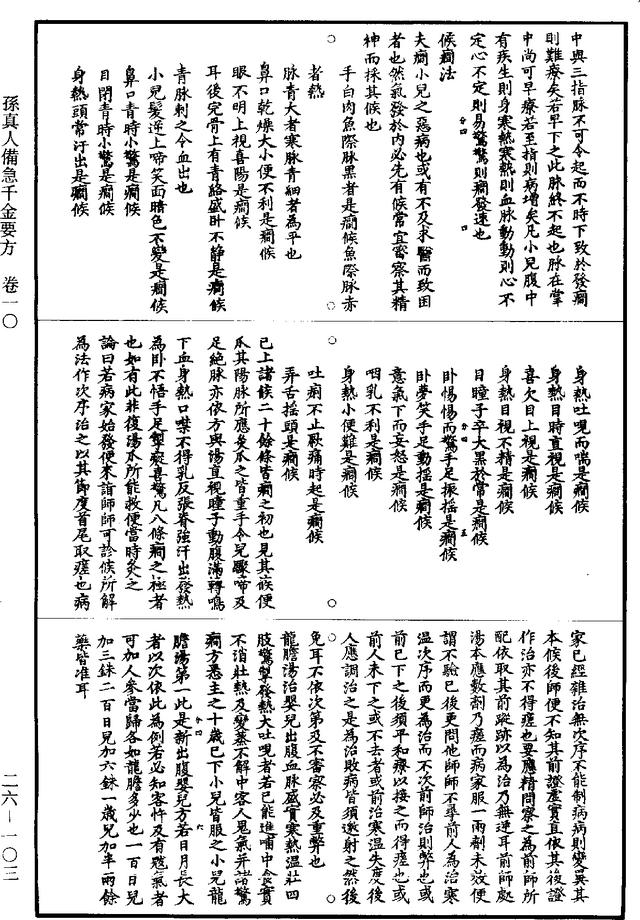 孫真人備急千金要方　卷一〇
中與三指脉不可令起而不時下致於發癇
則難療矣若早下之此脉終不起也脉在掌
中尚可早療若至指則病增矣凡小兒腹中
有疾生則身寒熱寒熱則血脉動動則心不
定心不定則易驚驚則癇發速也
候癇法
夫癇小兒之惡病也或有不及求醫而致困
者也然氣發於內必先有候常宜審察其精
神而採其候也
手白肉魚際脉黑者是癇候魚際脉赤
者熱
脉青大者寒脉青細者為平也
鼻口乾燥大小便不利是癇候
眼不明上視喜陽是癇候
耳後完骨上有青絡盛卧不静是癇候
青脉刺之令血出也
小兒髮逆上啼笑面暗色不變是癇候
鼻口青時小驚是癇候
目閉青時小驚是癇候
身熱頭常汗出是癇候
身熱吐哯而喘是癇候
身熱目時直視是癇候
喜欠目上視是癇候
身熱目視不精是癇候
目瞳子卒大黑於常是癇候
卧惕惕而驚手足振搖是癇候
卧夢笑手足動搖是癇候
意氣下而妄怒是癇候
咽乳不利是癇候
身熱小便難是癇候
吐痢不止厥痛時起是癇候
弄舌摇頭是癇候
已上諸候二十餘條皆癇之初也見其候便
爪其陽脉所應灸爪之皆重手令兒驟啼及
足絶脉亦依方與湯直視瞳子動腹滿轉鳴
下血身熱口噤不得乳反張脊強汗出發熱
為卧不悟手足掣瘲喜驚凡八條癇之極者
也如有此非復湯爪所能救便當時灸之
論曰若病家始發便來詣師師可診候所解
為法作次序治之以其節度首尾取瘥也病
家已經雜治無次序不能制病病則變異其
本候後師便不知其前證虛實直依其後證
作治亦不得瘥也要應精問察之為前師所
配依取其前蹤跡以為治乃無逆耳前師處
湯本應數劑乃瘥而病家服一兩劑未效便
謂不驗已後更問他師師不尋前人為治寒
温次序而更為治而不次前師治則弊也或
前已下之後須平和療以接之而得瘥也或
前人未下之或不去者或前治寒温失度後
人應調治之是為治敗病皆須邀射之然後
免耳不依次第及不審察必及重弊也
龍膽湯治嬰兒出腹血脉盛實寒熱温壯四
肢驚掣發熱大吐哯者若已能進哺中食實
不消壯熱及變蒸不解中客人鬼氣并諸驚
癇方悉主之十歲已下小兒皆服之小兒龍
膽湯第一此是新出腹嬰兒方若日月長大
者以次依此為例若必知客忤及有魃氣者
可加人參當歸各如龍膽多少也一百日兒
加三銖二百日兒加六銖一歲兒加半兩餘
藥皆准耳
二六—一〇三